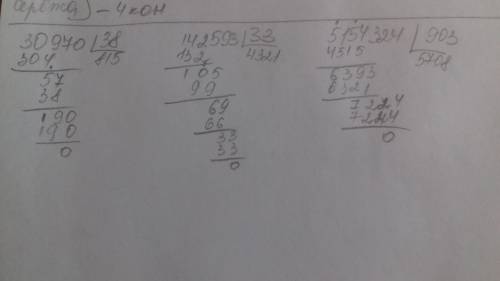 – 4 кон
30970 38
304 815
57
38
190
190
0
142593 33
132 4321
105
99
69
66
33
33
0
5154324 903
4515 5708
6393
6321
7224
7224
0